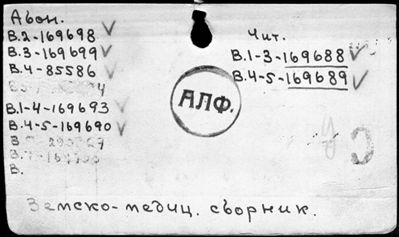 Абон.
В.2-169698
В.3-169699
В.4-85586
В.1-4-169693
В.4-5-169690
В.
Чит.
В.1-3-169688
В.4-5-169689
АЛФ.
Земско-медиц. сборник.